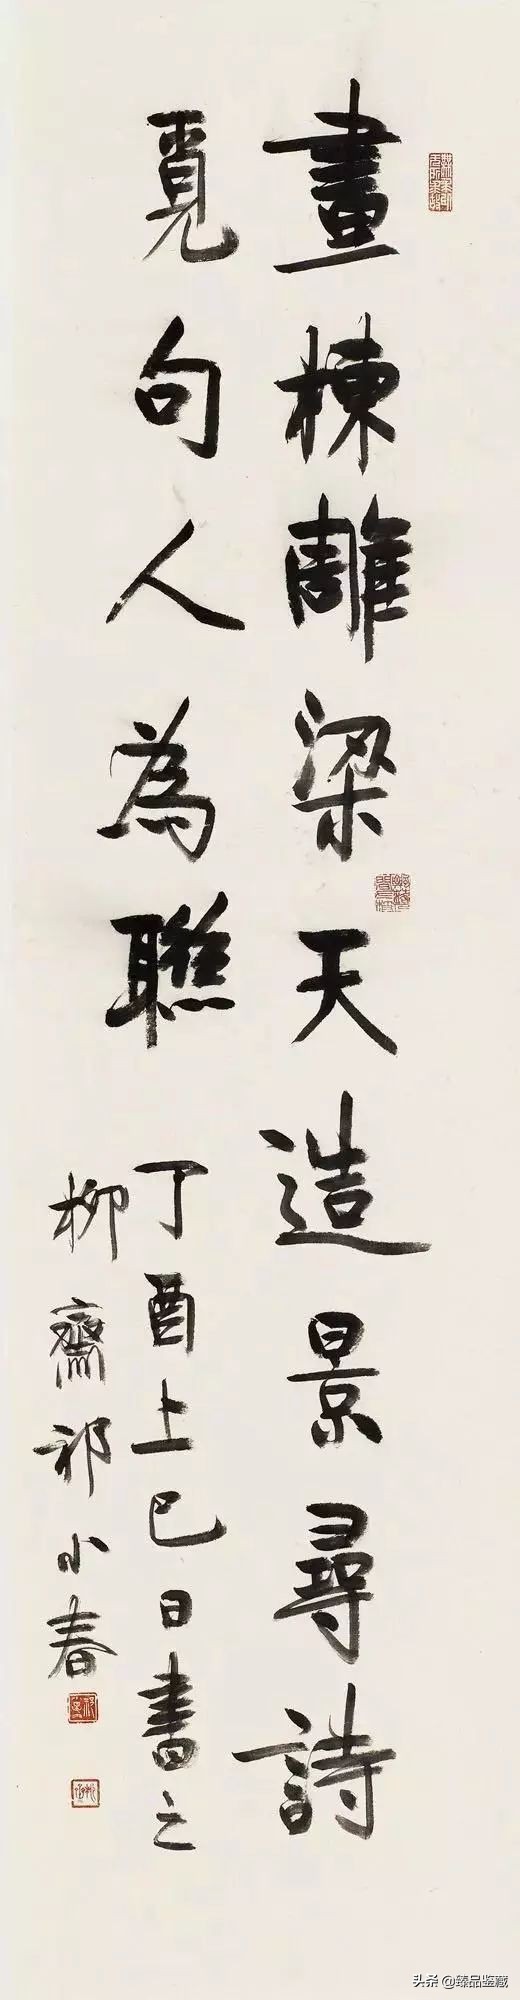 畫棟雕梁天造景尋詩
覓句人為聯
丁酉上巳日書之
柳齋祁小春
头条@臻品鉴藏